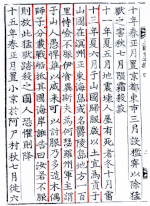 十年春正月置京都東市三月設檻穽以除猛
獸之害秋七月隕霜殺菽
十一年夏五月地震壞人屋有死者冬十月雷
十三年夏六月于山國歸服歲以土宜爲貢于
山國在溟州正東海島或名鬱陵島地方一百
里恃嶮不服伊湌異斯夫爲何瑟羅州軍主謂
于山人愚悍難以威來可以計服乃多造木偶
師子分載戰船抵其國海岸誑告曰汝若不服
則放此猛獸踏殺之國人恐懼則降
十五年春正月置小京於阿尸村秋七月徙六